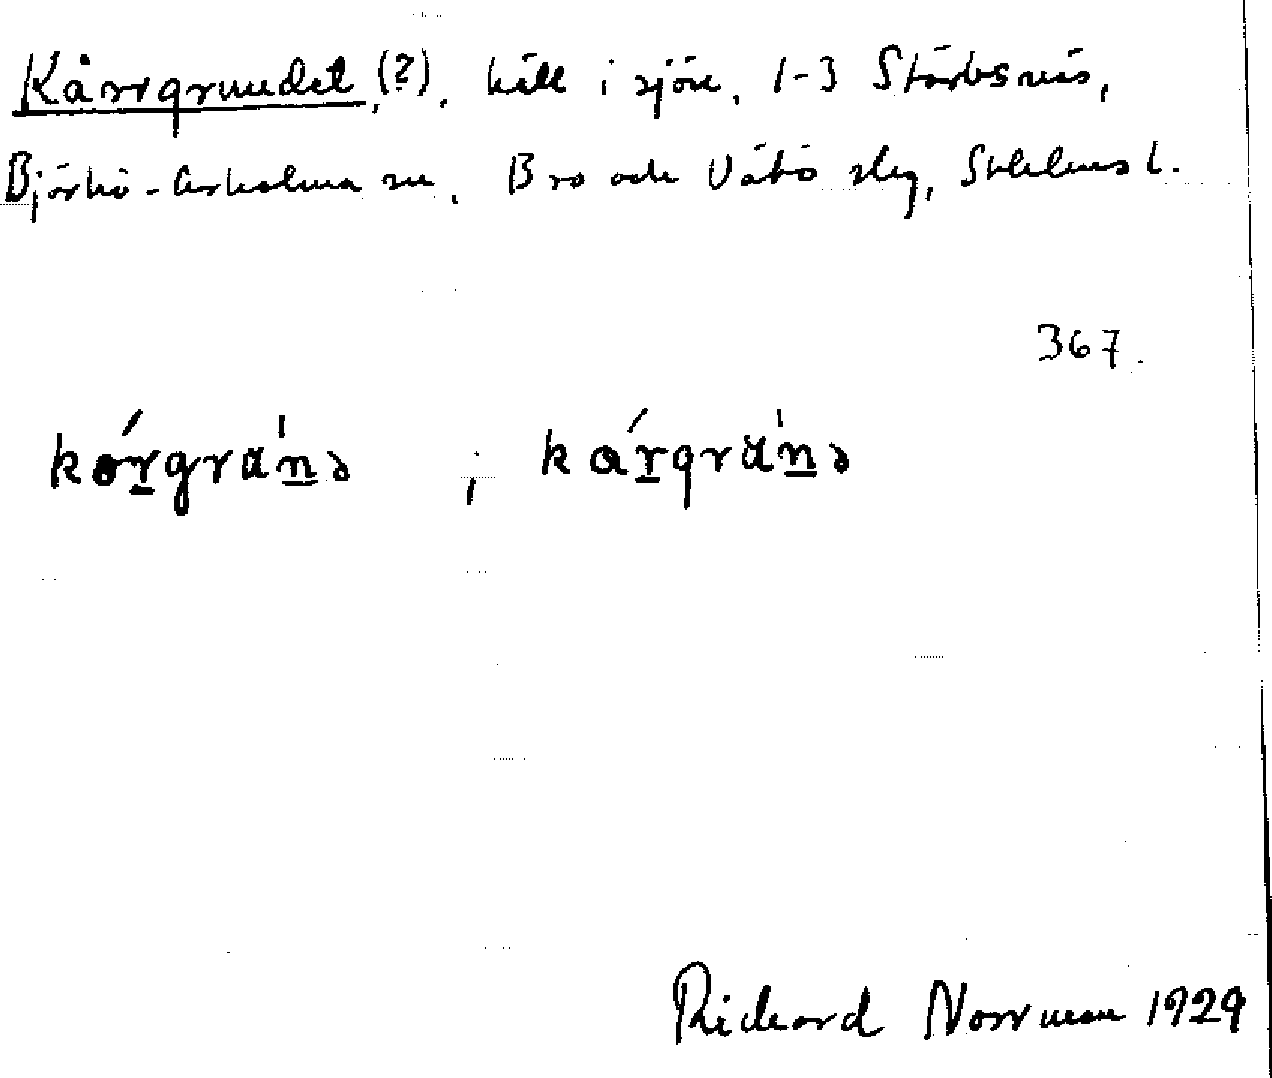 Kårrgrundet, (?), häll i sjön, 1-3 Storbsnäs,
Björkö-Arholma sn, Bro och Vätö slg, Sthlms l.
367.
kórgrán̲ə ; kár̲gràn̲ə
Richard Norrman 1929